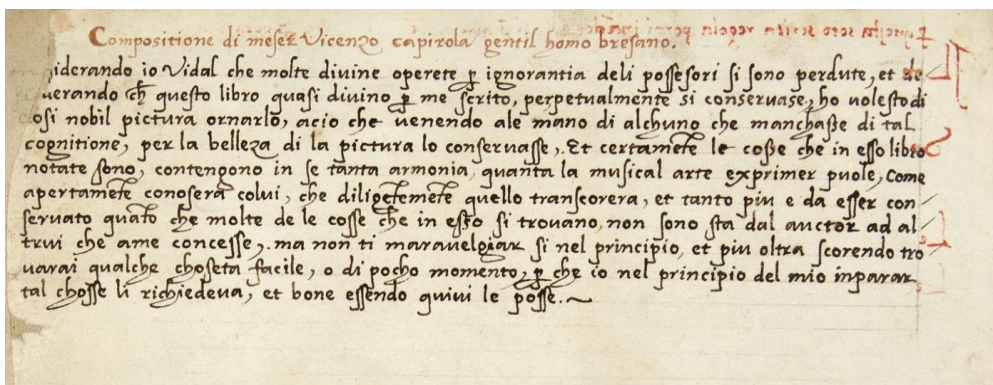 Compositione di meser Vicenzo capirola gentil homo bresano.
siderando io Vidal che molte divine operete ꝑ ignorantia deli possesori si sono perdute, et de
iderando ch̃ questo libro quasi divino ꝑ me scrito, perpetualmente si conservase, ho volesto di
osi nobil pictura ornarlo, acio che venendo ale mano di alchuno che manchasse di tal
cognitione, per la belleza di la pictura lo conservasse, Et certamẽte le cosse che in esso libro
notate sono, contengono in se tanta armonia, quanta la musical arte exprimer puole, Come
apertamẽte conosera colui, che diligẽtemẽte quello transcorera, et tanto piu e da esser con
servato quãto che molte de le cosse ch̃e in esso si trovano, non sono sta dal auctor ad al
trui che ame concesse, ma non ti maravelgiar si nel principio, et piu oltra scorendo tro
varai qualche choseta facile, o di pocho momento, ꝑ che io nel principio del mio inparar
tal chosse li richiedeva, et bone essendo quivi le posse.~